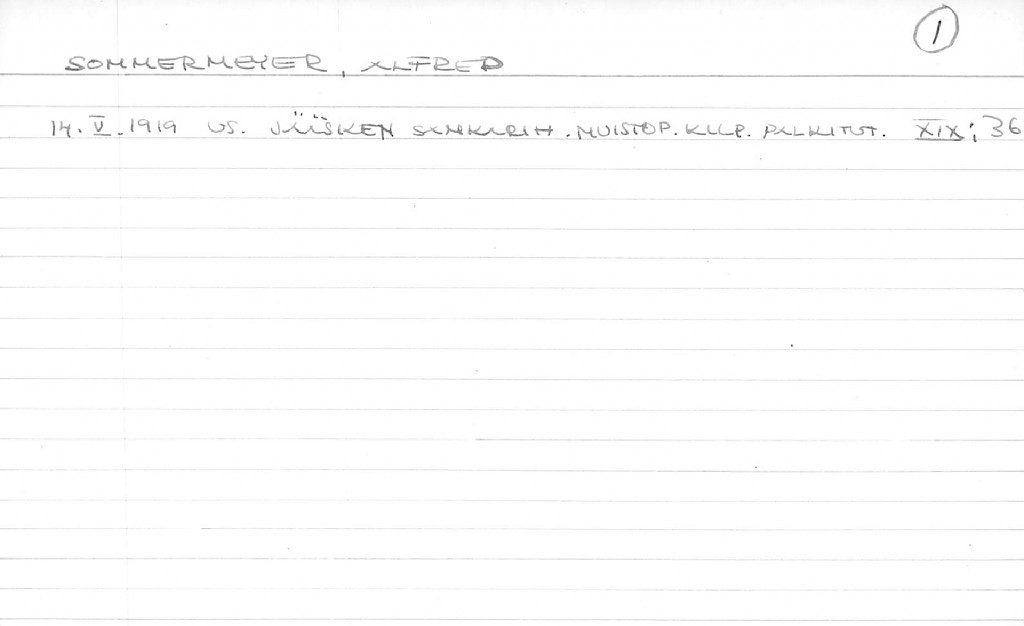 1
SOMMERMEYER, ALFRED
14. V. 1919 US. JÄÄSKEN SANKARIH. MUISTOP. KILP. PALKITUT. XIX; 36